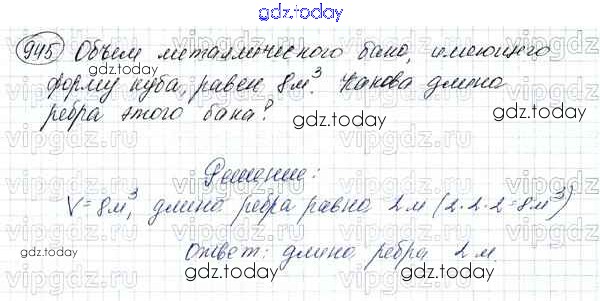 gdz.today
945 Объем металлического бака, имеющего
форму куба, равен 8 м³. Какова длина
ребра этого бака?
gdz.today
gdz.today
Решение:
V = 8 м³, длина ребра равна 2 м (2·2·2=8 м³)
gdz.today
gdz.today
Ответ: длина ребра 2 м.
gdz.today
gdz.today
vipgdz.ru